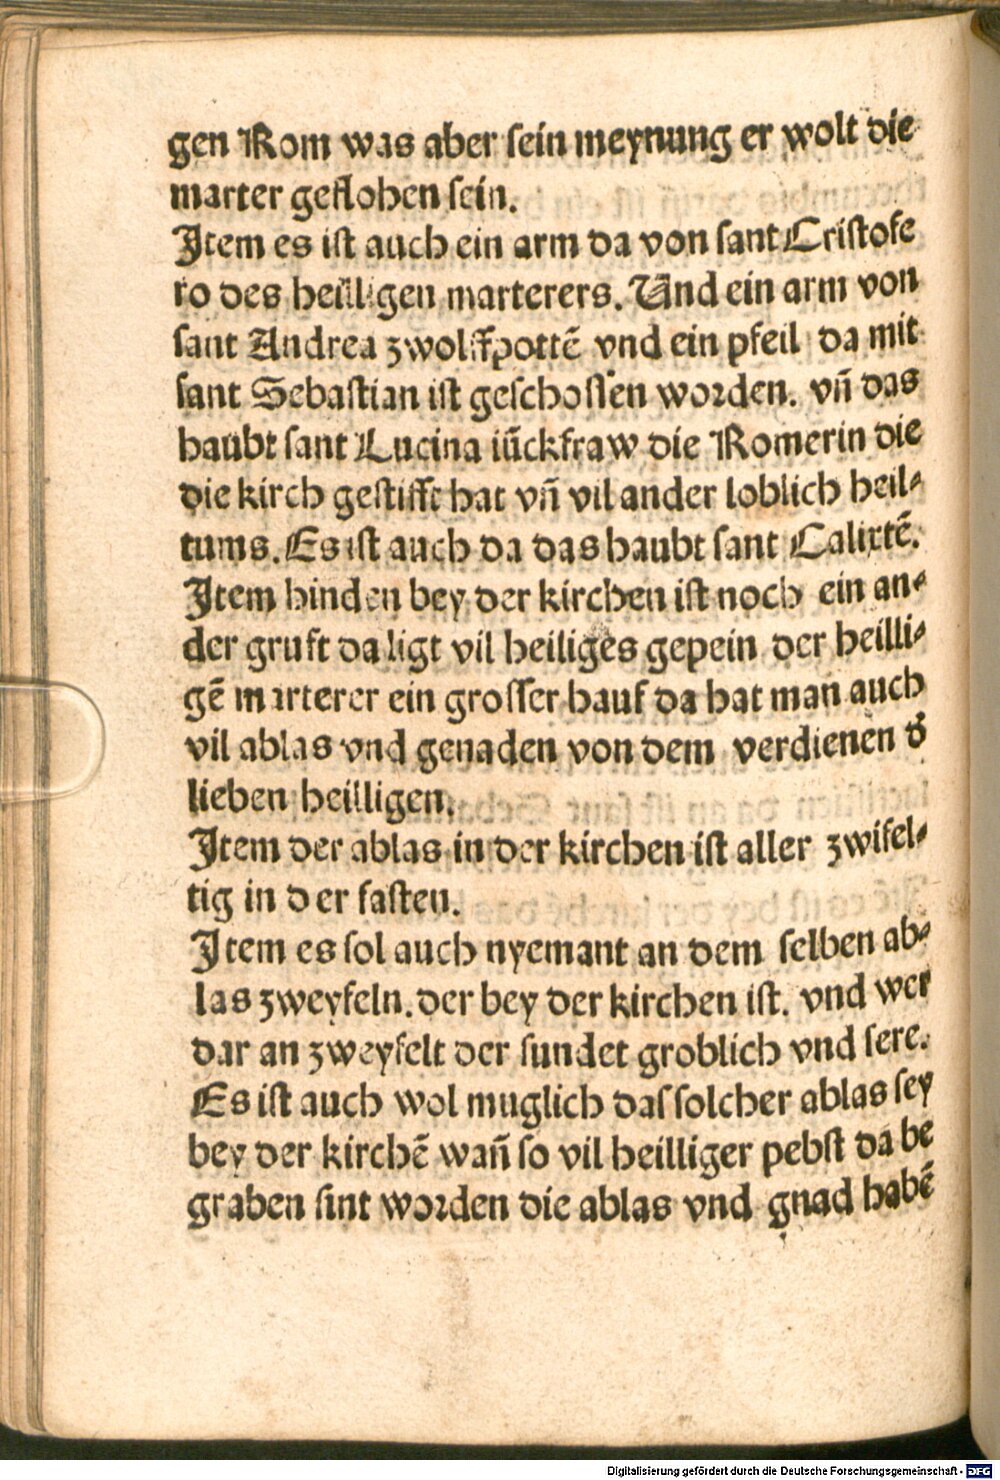 gen Rom was aber sein meynung er wolt die
marter geflohen sein.
Item es ist auch ein arm da von sant Cristofe
ro des heilligen marterers. Und ein arm von
sant Andrea zwolffpottē vnd ein pfeil da mit
sant Sebastian ist geschossen worden. vñ das
haubt sant Lucina iūckfraw die Romerin die
die kirch gestifft hat vñ vil ander loblich heil⸗
tums. Es ist auch da das haubt sant Calixtē.
Item hinden bey der kirchen ist noch ein an⸗
der gruft da ligt vil heiliges gepein der heilli⸗
gē marterer ein grosser hauf da hat man auch
vil ablas vnd genaden von dem verdienen d̓
lieben heilligen.
Item der ablas in der kirchen ist aller zwifel⸗
tig in der fasten.
Item es sol auch nyemant an dem selben ab⸗
las zweyfeln. der bey der kirchen ist. vnd wer
dar an zweyfelt der sundet groblich vnd sere.
Es ist auch wol muglich das solcher ablas sey
bey der kirchē wañ so vil heilliger pebst da be
graben sint worden die ablas vnd gnad habē
Digitalisierung gefördert durch die Deutsche Forschungsgemeinschaft - DFG